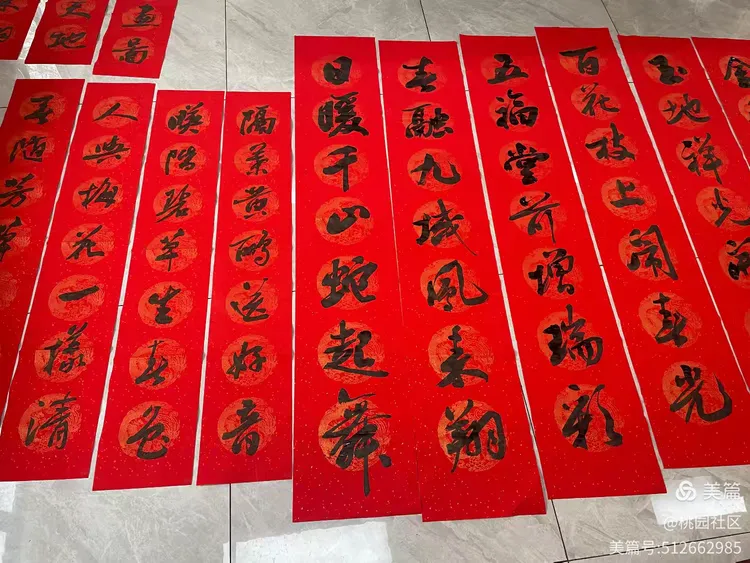 天地
畫圖
春随芳草
人與梅花一樣清
映階碧草生春色
隔葉黄鸝送好音
日暖千山蛇起舞
春融九域鳳来翔
五福堂前增瑞彩
百花枝上闹春光
玉地祥光
金
美篇
@桃园社区
美篇号:512662985